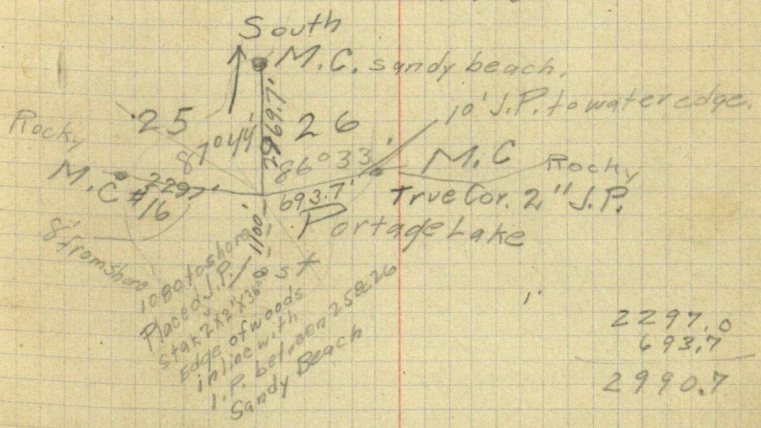 South
M.C. sandy beach.
10' J.P. to water edge.
25
26
Rocky
87°44'
2969.7'
86°33'
M.C
Rocky
M.C #16
2297'
693.7'
True Cor. 2" J.P.
Portage Lake
8' from shore
1100'
1080 to shore
Placed J.P.
Stak 2"x2"x36"
Edge of woods
in line with
I.P. between 25&26
Sandy Beach
2297.0
693.7
2990.7